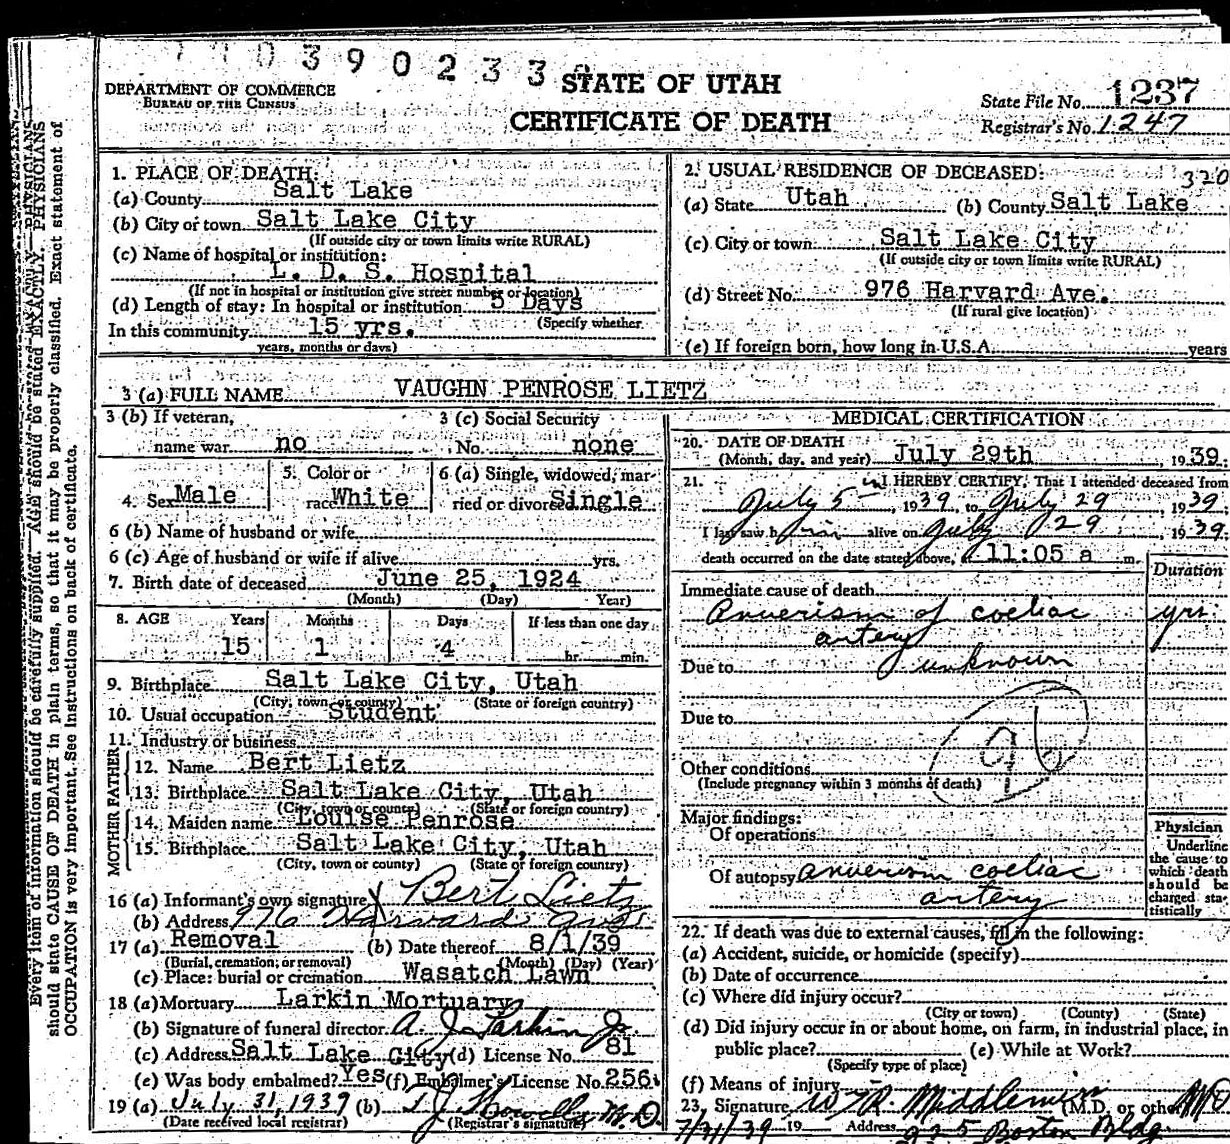 39023
DEPARTMENT OF COMMERCE
BUREAU OF THE CENSUS
STATE OF UTAH
CERTIFICATE OF DEATH
State File No. 1237
Registrar's No. 1247
1. PLACE OF DEATH:
(a) County Salt Lake
(b) City or town Salt Lake City
(If outside city or town limits write RURAL)
(c) Name of hospital or institution:
L. D. S. Hospital
(If not in hospital or institution give street number or location)
(d) Length of stay: In hospital or institution 5 Days
(Specify whether
In this community 15 yrs.
years, months or days)
2. USUAL RESIDENCE OF DECEASED:
320
(a) State Utah (b) County Salt Lake
(c) City or town Salt Lake City
(If outside city or town limits write RURAL)
(d) Street No. 976 Harvard Ave.
(If rural give location)
(e) If foreign born, how long in U.S.A. years
3 (a) FULL NAME VAUGHN PENROSE LIETZ
3 (b) If veteran,
name war no
3 (c) Social Security
No. none
4. Sex Male
5. Color or
race White
6 (a) Single, widowed, mar-
ried or divorced Single
6 (b) Name of husband or wife
6 (c) Age of husband or wife if alive yrs.
7. Birth date of deceased June 25, 1924
(Month) (Day) Year)
8. AGE Years Months Days If less than one day
15 1 4 hr. min.
9. Birthplace Salt Lake City, Utah
(City, town or county) (State or foreign country)
10. Usual occupation Student
11. Industry or business
FATHER
12. Name Bert Lietz
13. Birthplace Salt Lake City, Utah
(City, town or county) (State or foreign country)
MOTHER
14. Maiden name Louise Penrose
15. Birthplace Salt Lake City, Utah
(City, town or county) (State or foreign country)
16 (a) Informant's own signature X Bert Lietz
(b) Address 976 Harvard Ave
17 (a) Removal (b) Date thereof 8/1/39
(Burial, cremation, or removal) (Month) (Day) (Year)
(c) Place: burial or cremation Wasatch Lawn
18 (a) Mortuary Larkin Mortuary
(b) Signature of funeral director A. J. Larkin Jr.
(c) Address Salt Lake City (d) License No. 81
(e) Was body embalmed? Yes (f) Embalmer's License No. 256
19 (a) July 31, 1939 (b) T J Howells M.D.
(Date received local registrar) (Registrar's signature)
MEDICAL CERTIFICATION
20. DATE OF DEATH
(Month, day, and year) July 29th, 1939.
21. I HEREBY CERTIFY, That I attended deceased from
July 5, 1939, to July 29, 1939
I last saw him alive on July 29, 1939.
death occurred on the date stated above, at 11:05 a m.
Duration
Immediate cause of death
Anuerism of coeliac yrs.
artery
Due to unknown
Due to
96
Other conditions
(Include pregnancy within 3 months of death)
Major findings:
Of operations
Of autopsy anuerism coeliac
artery
Physician
Underline
the cause to
which death
should be
charged sta-
tistically
22. If death was due to external causes, fill in the following:
(a) Accident, suicide, or homicide (specify)
(b) Date of occurrence
(c) Where did injury occur?
(City or town) (County) (State)
(d) Did injury occur in or about home, on farm, in industrial place, in
public place? (e) While at Work?
(Specify type of place)
(f) Means of injury
23. Signature W R Middlemiss (M.D. or other) MD
7/31/39 19 Address 925 Boston Bldg.
Every item of information should be carefully supplied. AGE should be stated EXACTLY. PHYSICIANS
should state CAUSE OF DEATH in plain terms, so that it may be properly classified. Exact statement of
OCCUPATION is very important. See Instructions on back of certificate.